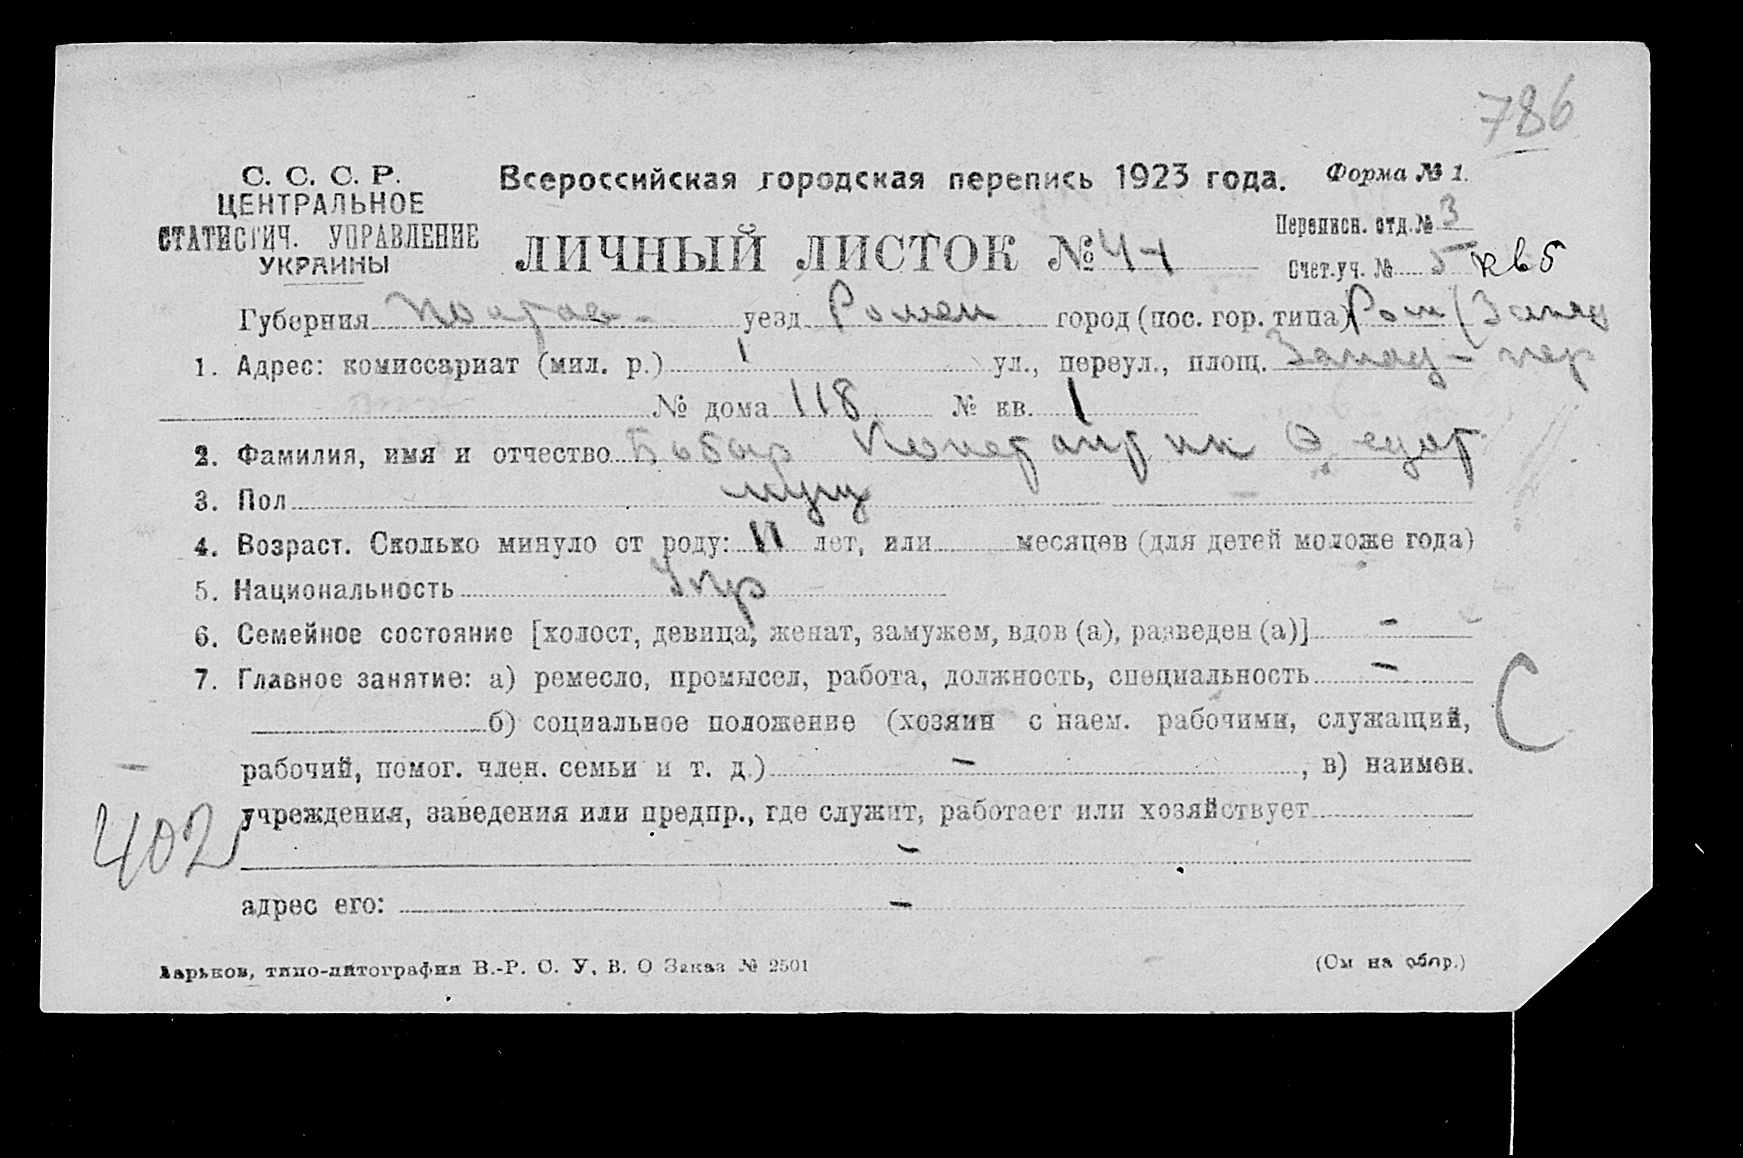 786
С. С. С. Р.
ЦЕНТРАЛЬНОЕ
СТАТИСТИЧ. УПРАВЛЕНИЕ
УКРАИНЫ
Всероссийская городская перепись 1923 года.
Форма № 1.
ЛИЧНЫЙ ЛИСТОК №
Переписн. отд. № 3
Счет. уч. № 5 кв 5
Губерния Полтав- уезд Ромен город (пос. гор. типа) Ром (Запад
1. Адрес: комиссариат (мил. р.) 1 ул., переул., площ. Запад- пер
№ дома 118 № кв. 1
2. Фамилия, имя и отчество Бабыр Констант ин Федот
3. Пол муж
4. Возраст. Сколько минуло от роду: 11 лет, или месяцев (для детей моложе года)
5. Национальность Укр
6. Семейное состояние [холост, девица, женат, замужем, вдов (а), разведен (а)] -
7. Главное занятие: а) ремесло, промысел, работа, должность, специальность -
б) социальное положение (хозяин с наем. рабочими, служащий,
С
рабочий, помог. член. семьи и т. д.) - , в) наимен.
учреждения, заведения или предпр., где служит, работает или хозяйствует
402
-
адрес его: -
Харьков, типо-литография В.-Р. О. У. В. О Заказ № 2501
(См на обор.)